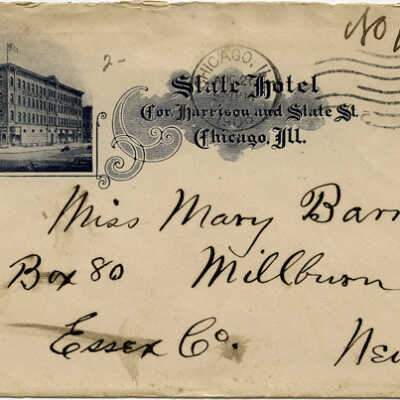 NO
2-
CHICAGO, IL
State Hotel
Cor. Harrison and State St.
Chicago, Ill.
Miss Mary Barr
Box 80 Millburn
Essex Co. New